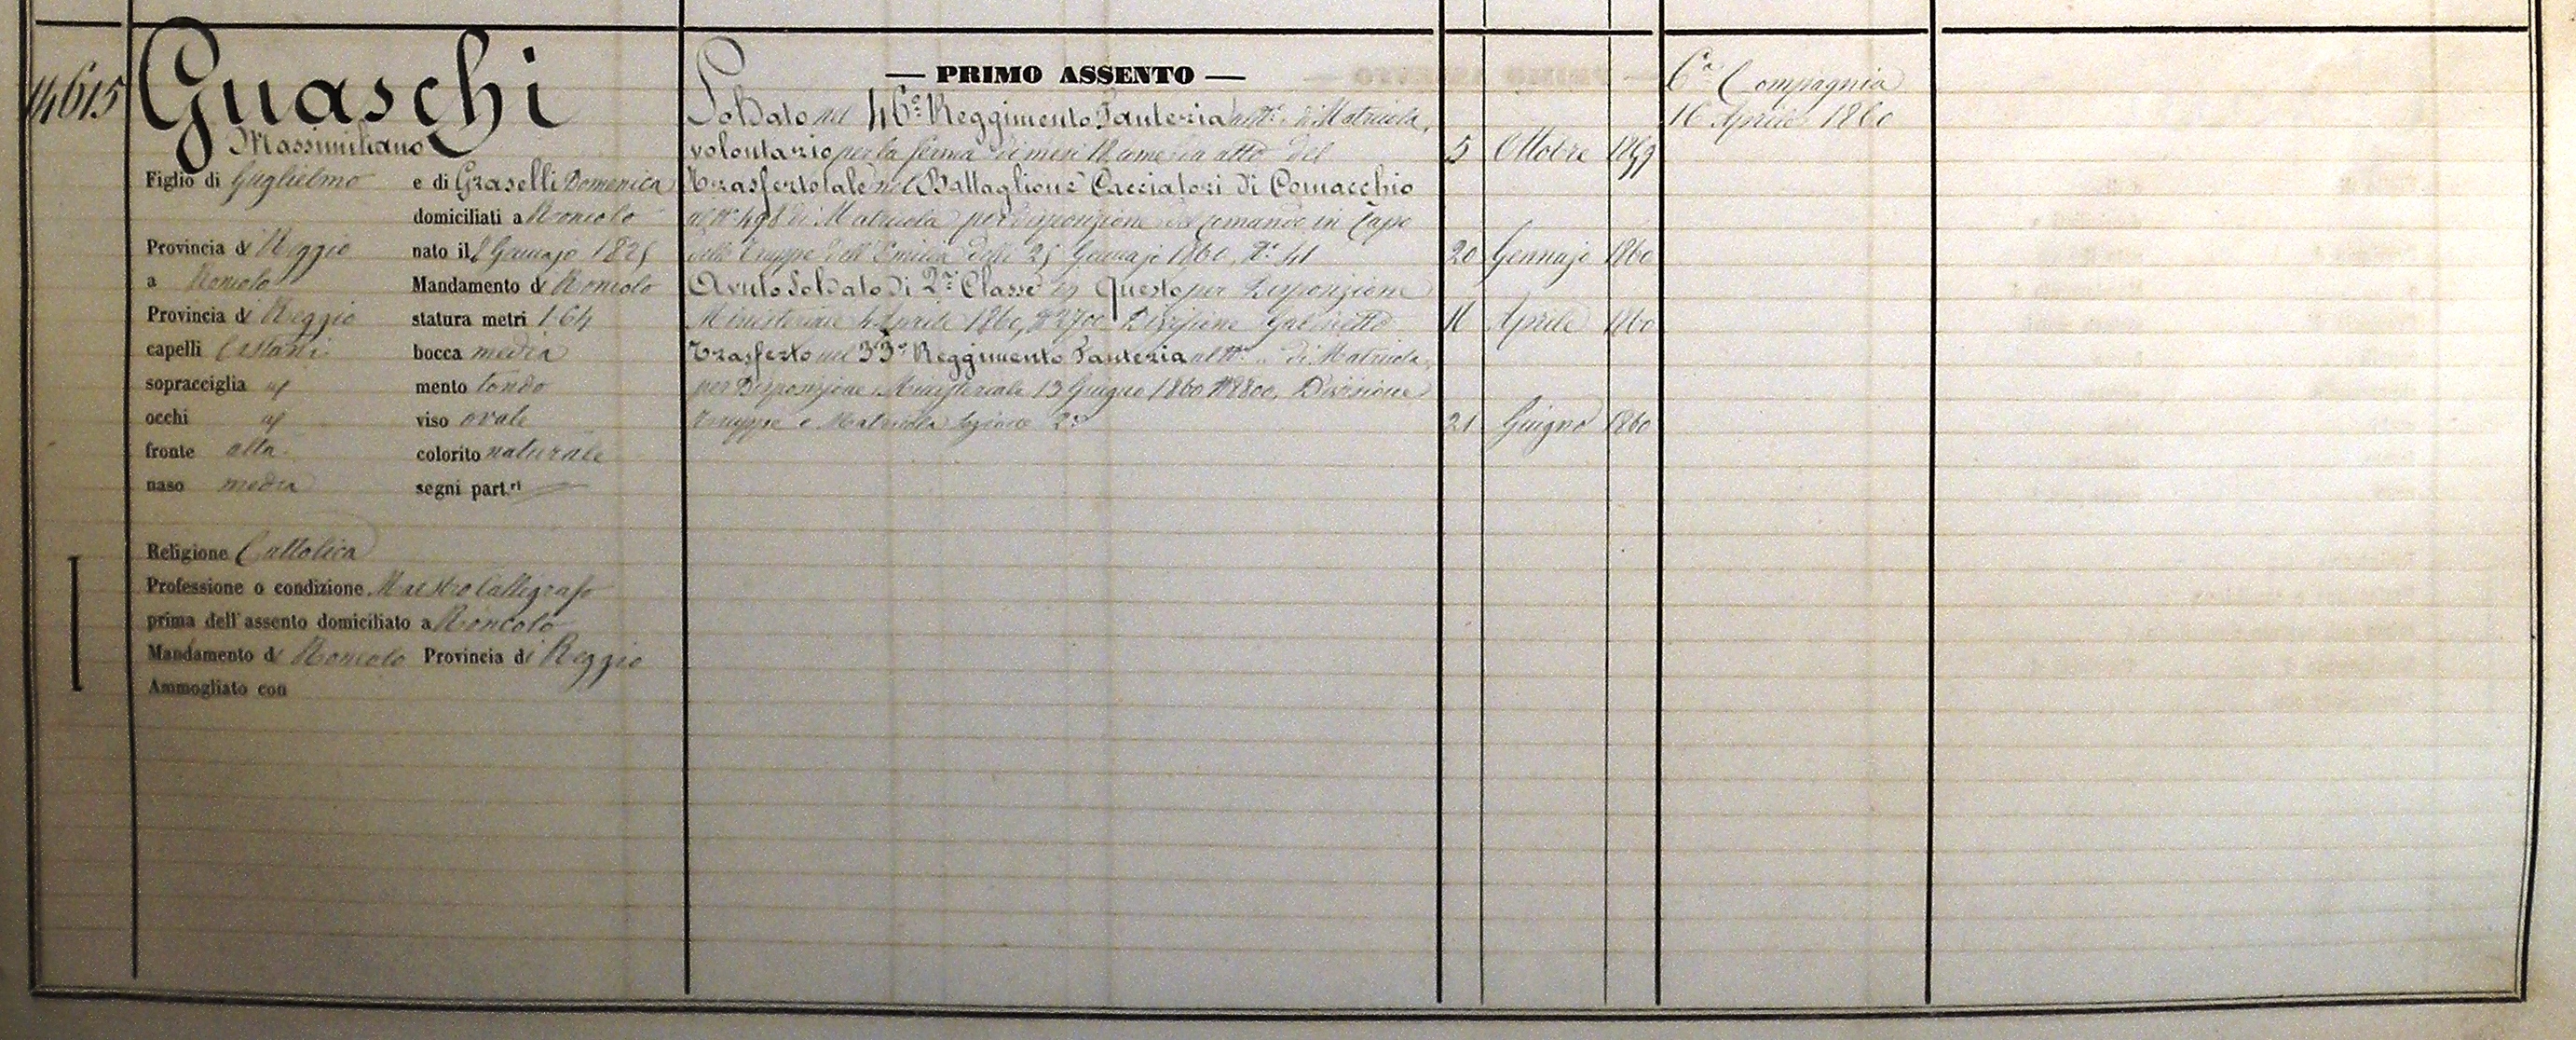 14615
Guaschi
Massimiliano
Figlio di Guglielmo e di Graselli Domenica
domiciliati a Roncolo
Provincia di Reggio nato il 8 Gennajo 1825
a Roncolo Mandamento di Roncolo
Provincia di Reggio statura metri 1.64
capelli Castani bocca media
sopracciglia id mento tondo
occhi id viso ovale
fronte alta colorito naturale
naso media segni part.ri
Religione Cattolica
Professione o condizione Maestro Calligrafo
prima dell'assento domiciliato a Roncolo
Mandamento di Roncolo Provincia di Reggio
Ammogliato con
— PRIMO ASSENTO —
Soldato nel 46° Reggimento Fanteria al N° di Matricola,
volontario per la ferma di mesi 18 come da atto del 5 Ottobre 1859
Trasferto tale nel Battaglione Cacciatori di Comacchio
al N° 498 di Matricola per disposizione del Comando in Capo
delle Truppe dell'Emilia delli 25 Gennajo 1860, N° 41 20 Gennajo 1860
Avuto Soldato di 2ª Classe in Questo per Disposizione
Ministeriale 4 Aprile 1860, N° 2700 Divisione Gabinetto 16 Aprile 1860
Trasferto nel 33° Reggimento Fanteria al N° di Matricola,
per Disposizione Ministeriale 13 Giugno 1860 N° 8800, Divisione
Truppe e Matricola Sezione 2ª 21 Giugno 1860
6ª Compagnia
16 Aprile 1860